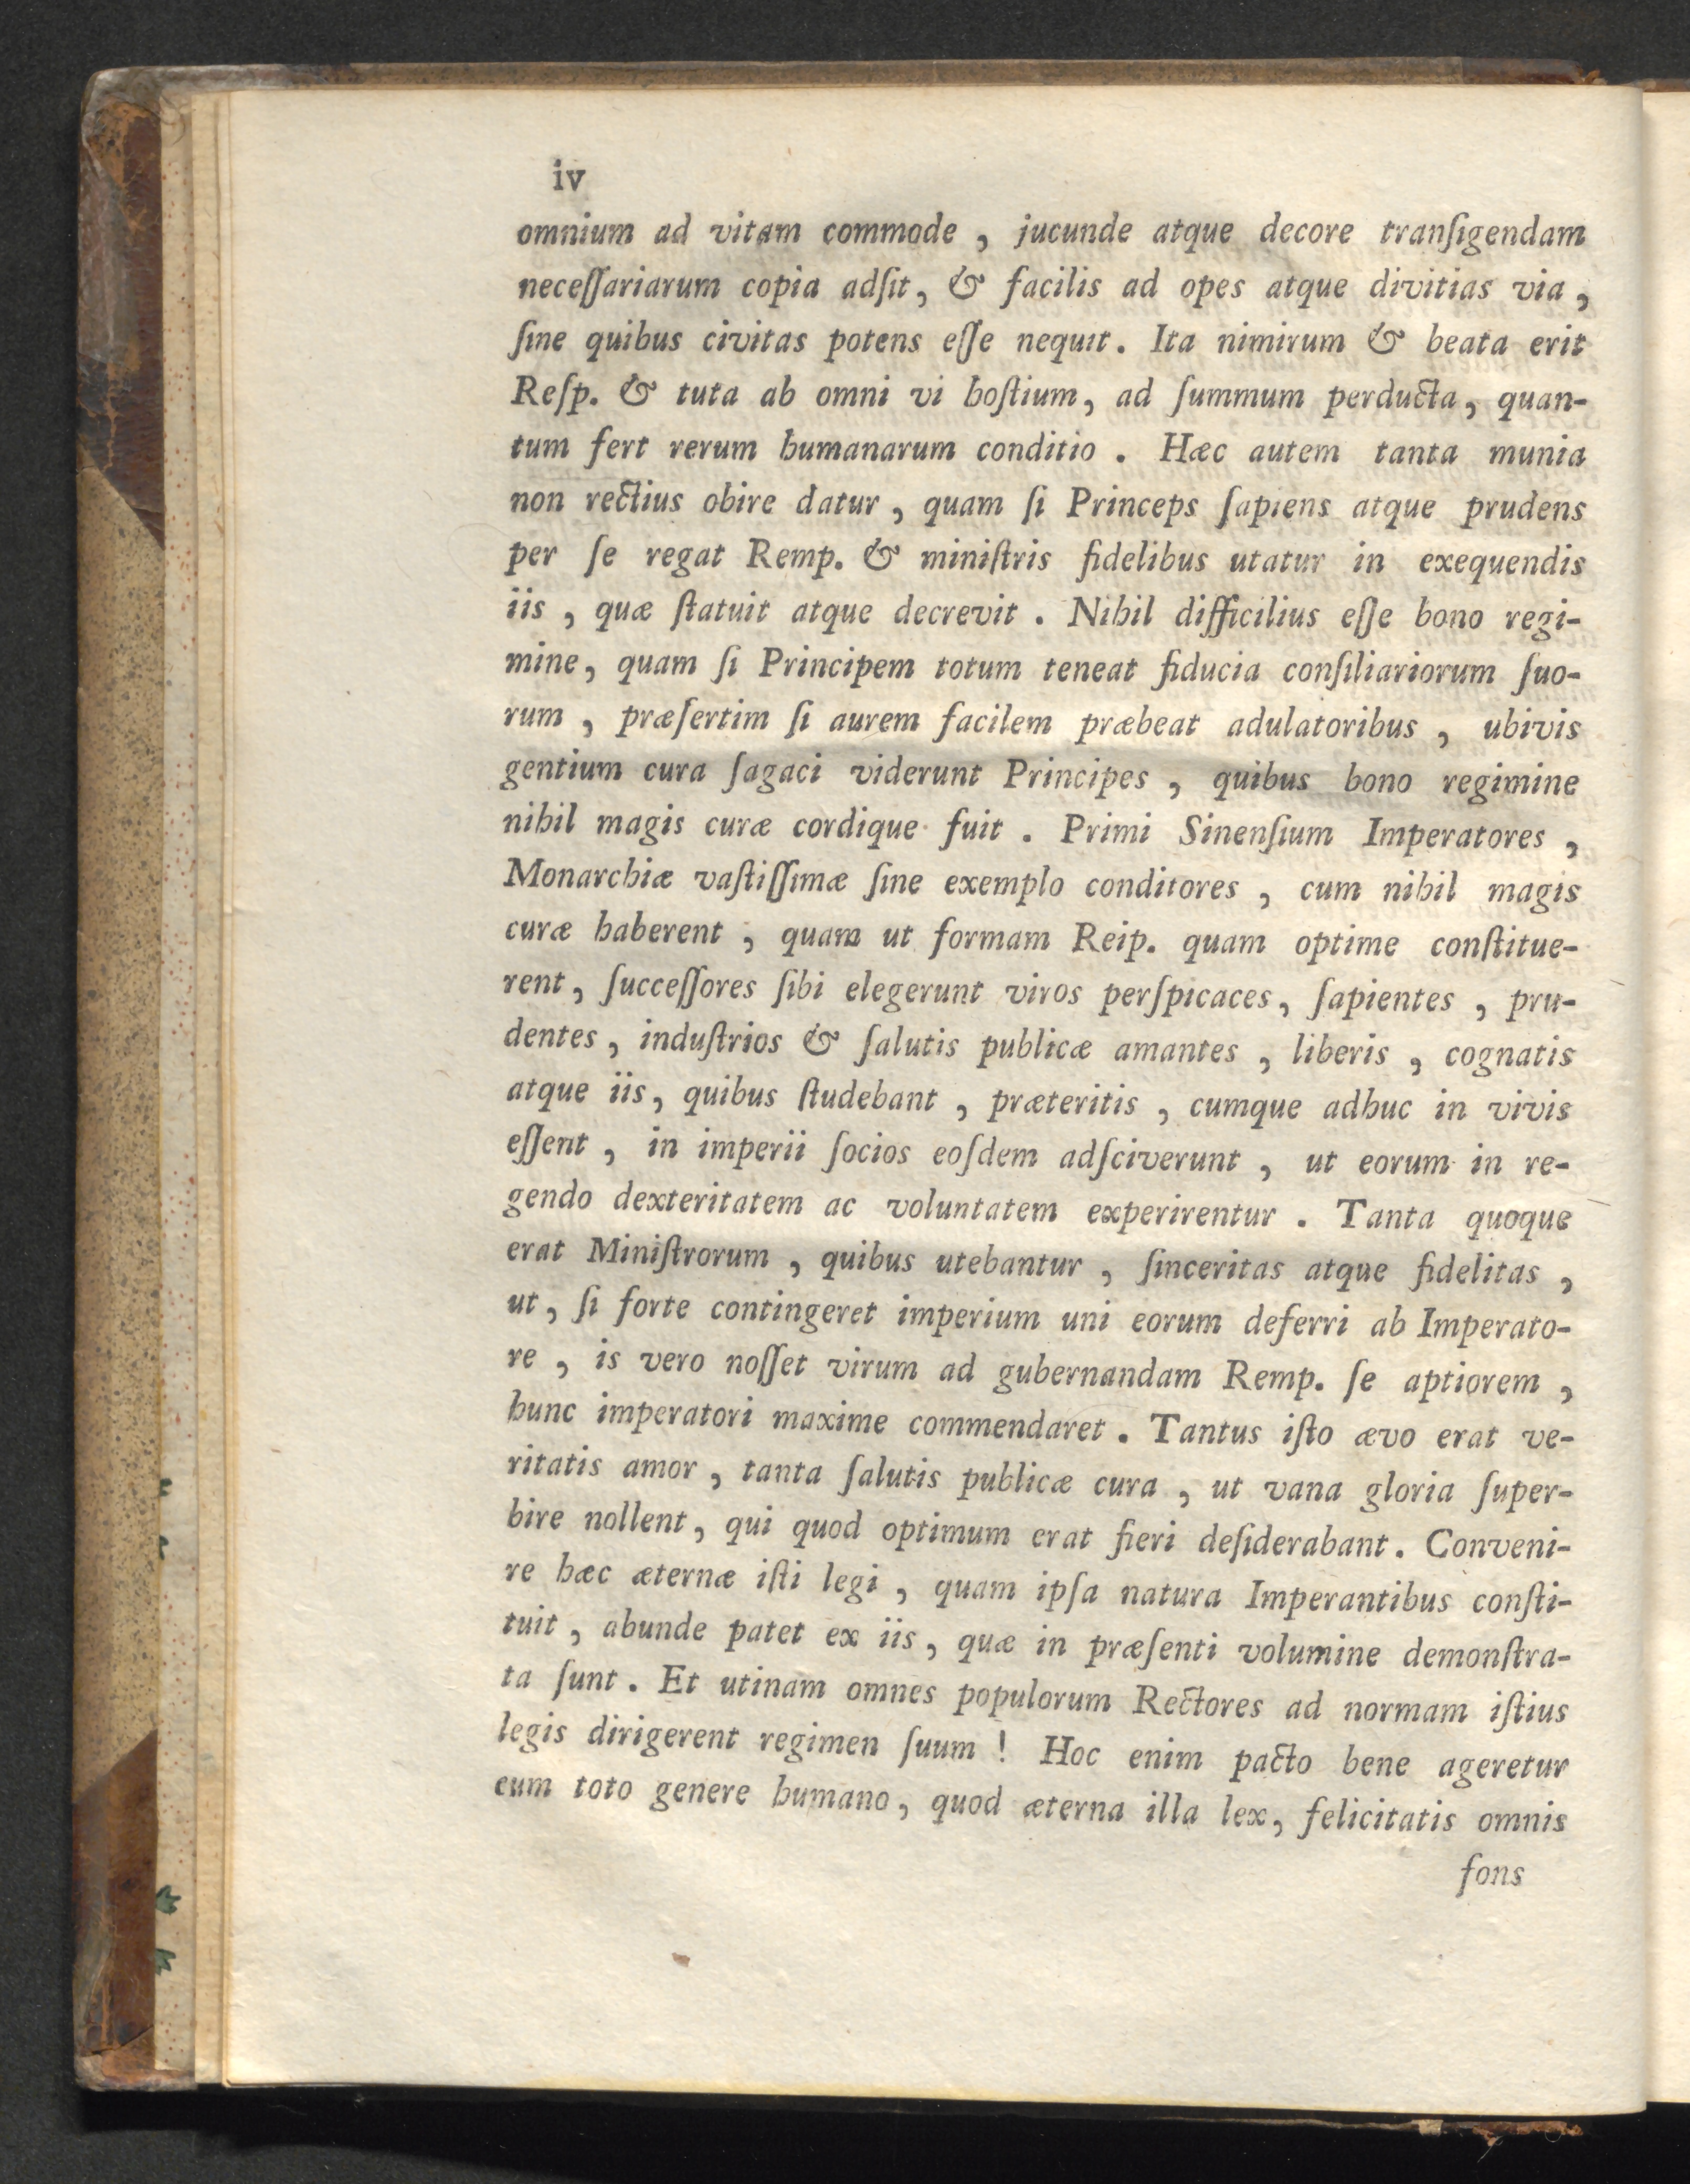 iv
omnium ad vitam commode , jucunde atque decore tranſigendam
neceſſariarum copia adſit, & facilis ad opes atque divitias via ,
ſine quibus civitas potens eſſe nequit. Ita nimirum & beata erit
Reſp. & tuta ab omni vi hoſtium, ad ſummum perducta, quan-
tum fert rerum humanarum conditio . Hæc autem tanta munia
non rectius obire datur , quam ſi Princeps ſapiens atque prudens
per ſe regat Remp. & miniſtris fidelibus utatur in exequendis
iis , quæ ſtatuit atque decrevit . Nihil difficilius eſſe bono regi-
mine, quam ſi Principem totum teneat fiducia conſiliariorum ſuo-
rum , præſertim ſi aurem facilem præbeat adulatoribus , ubivis
gentium cura ſagaci viderunt Principes , quibus bono regimine
nihil magis curæ cordique fuit . Primi Sinenſium Imperatores ,
Monarchiæ vaſtiſſimæ ſine exemplo conditores , cum nihil magis
curæ haberent , quam ut formam Reip. quam optime conſtitue-
rent, ſucceſſores ſibi elegerunt viros perſpicaces, ſapientes , pru-
dentes, induſtrios & ſalutis publicæ amantes , liberis , cognatis
atque iis, quibus ſtudebant , præteritis , cumque adhuc in vivis
eſſent , in imperii ſocios eoſdem adſciverunt , ut eorum in re-
gendo dexteritatem ac voluntatem experirentur . Tanta quoque
erat Miniſtrorum , quibus utebantur , ſinceritas atque fidelitas ,
ut, ſi forte contingeret imperium uni eorum deferri ab Imperato-
re , is vero noſſet virum ad gubernandam Remp. ſe aptiorem ,
hunc imperatori maxime commendaret . Tantus iſto ævo erat ve-
ritatis amor , tanta ſalutis publicæ cura , ut vana gloria ſuper-
bire nollent, qui quod optimum erat fieri deſiderabant. Conveni-
re hæc æternæ iſti legi , quam ipſa natura Imperantibus conſti-
tuit , abunde patet ex iis, quæ in præſenti volumine demonſtra-
ta ſunt . Et utinam omnes populorum Rectores ad normam iſtius
legis dirigerent regimen ſuum ! Hoc enim pacto bene ageretur
cum toto genere humano, quod æterna illa lex, felicitatis omnis
fons